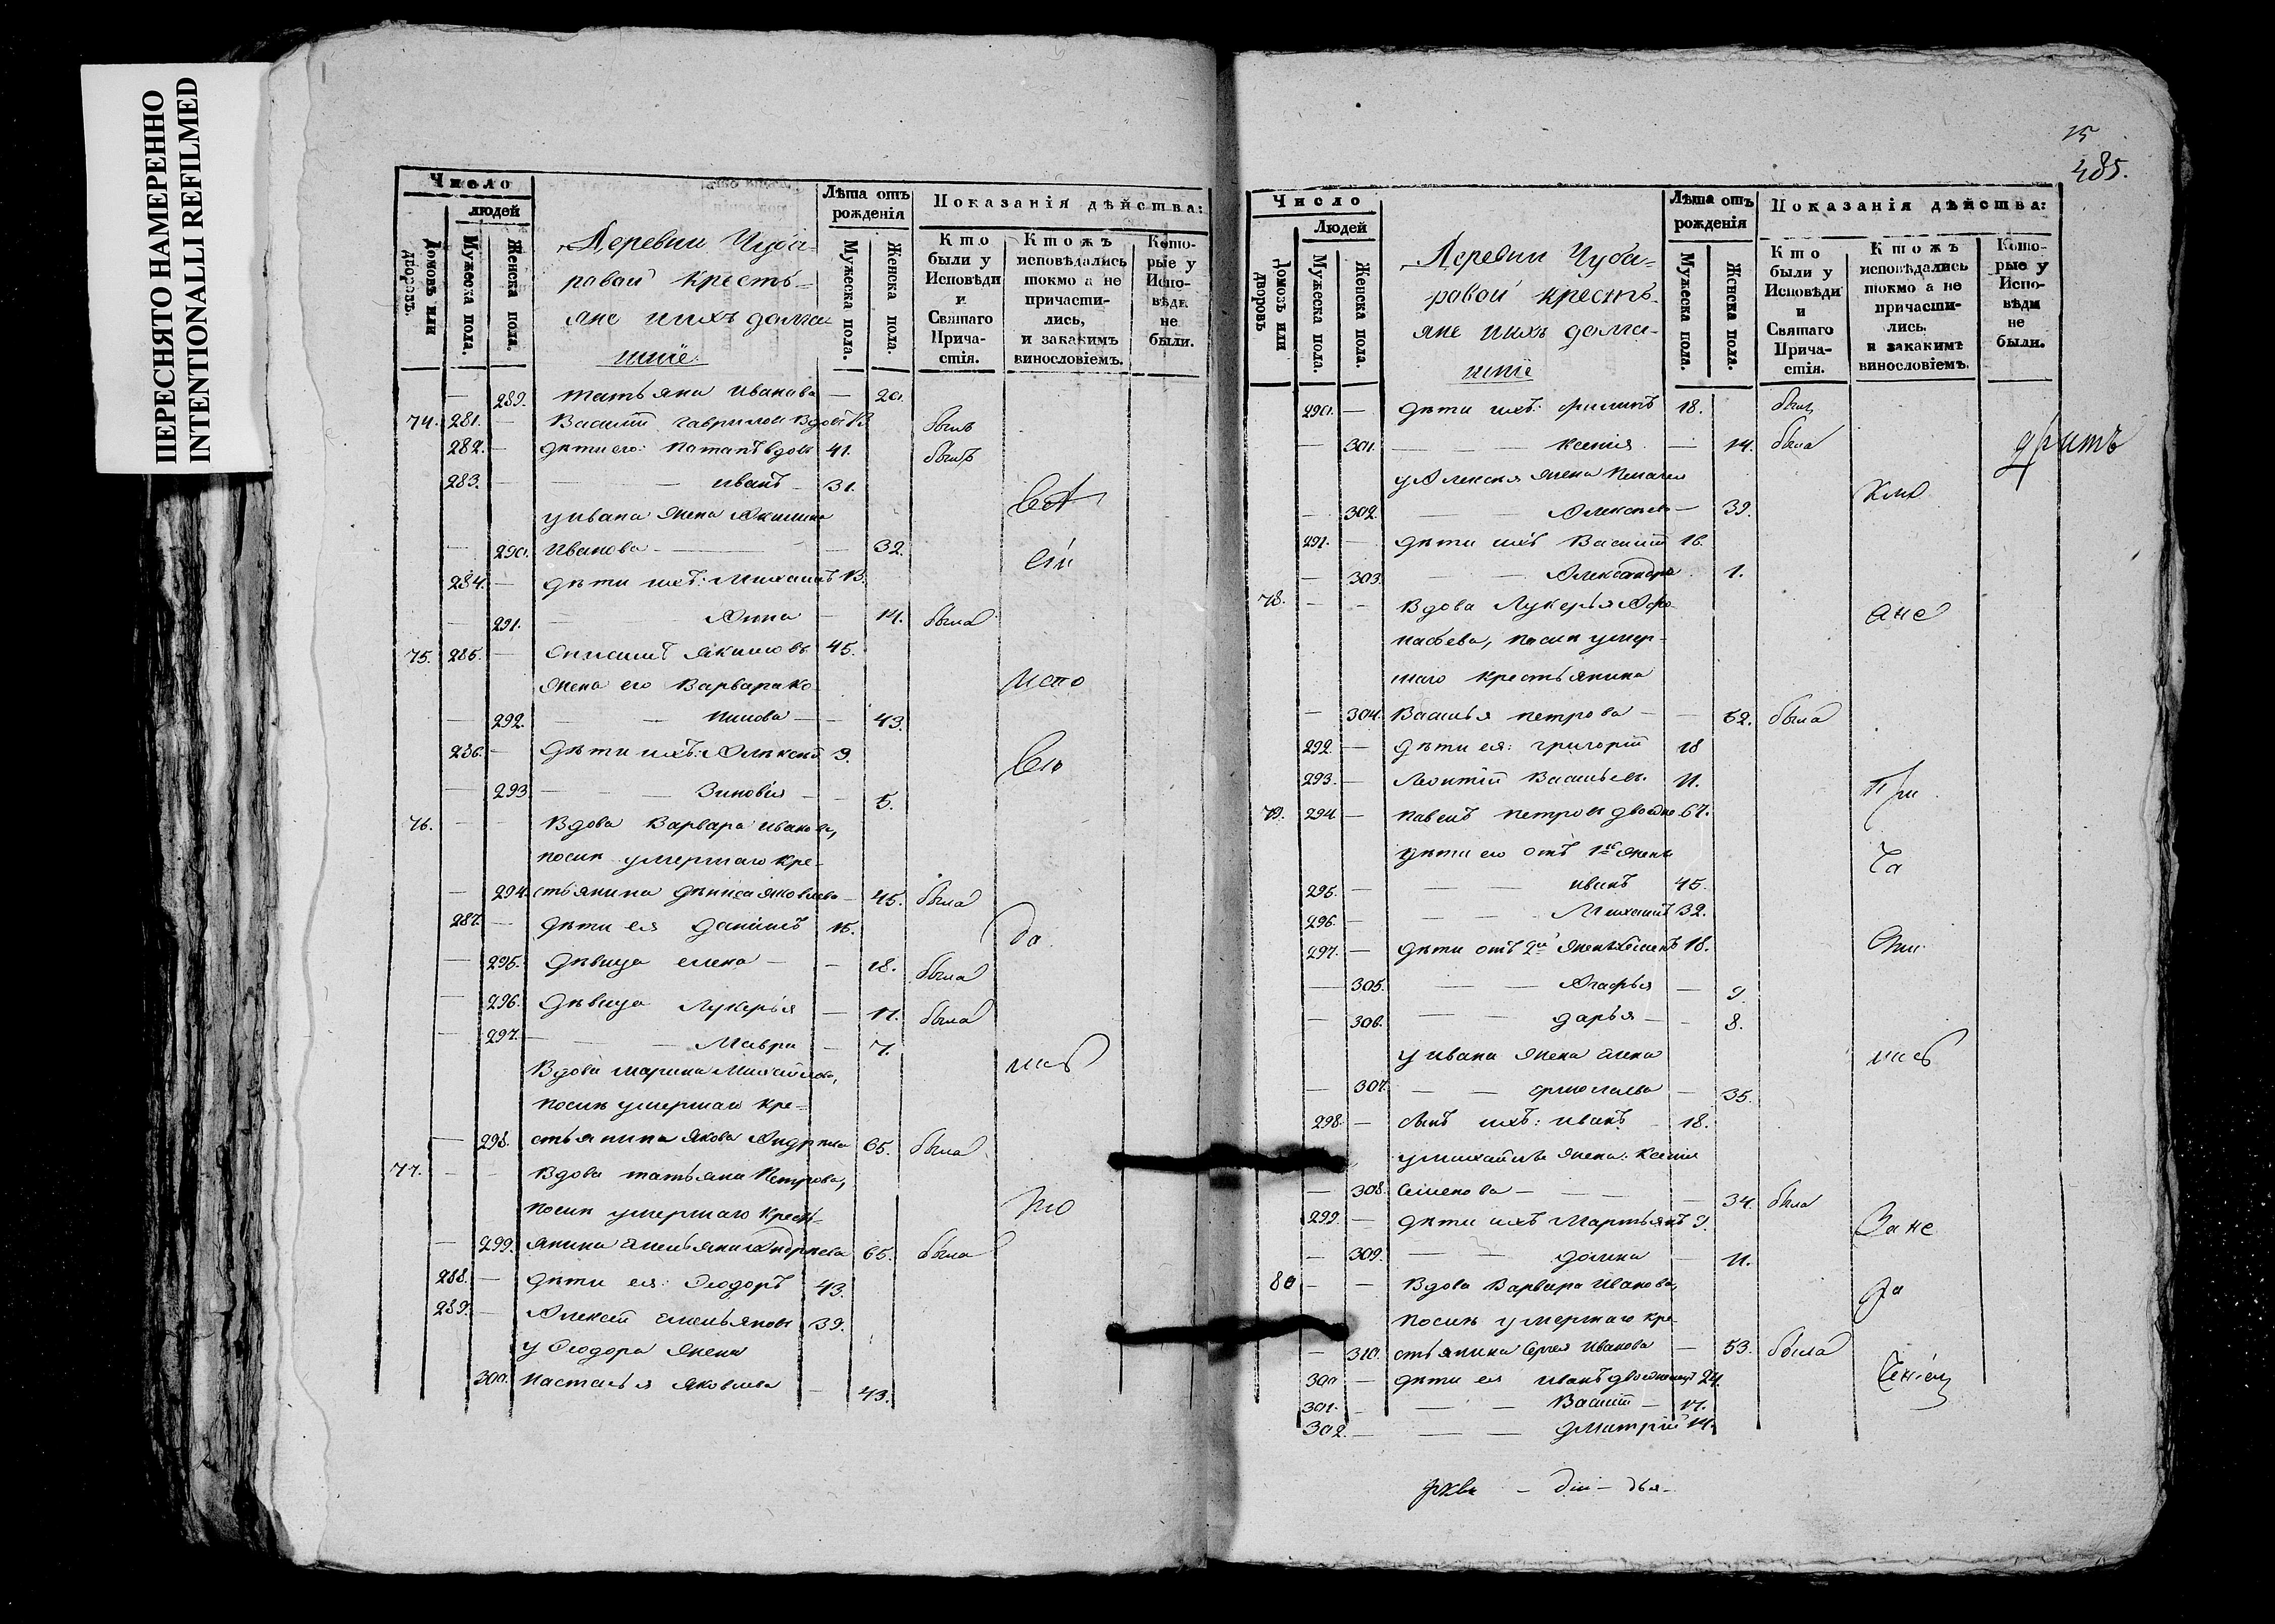 ПЕРЕСНЯТО НАМЕРЕННО
INTENTIONALLI REFILMED
Число
людей
Домовъ или дворовъ.
Мужеска пола.
Женска пола.
Деревни Чуба-
равой кресть-
яне ихъ дома-
шніе
Лѣта отъ рожденія
Мужеска пола.
Женска пола.
Показанія дѣйства:
Кто были у Исповѣди и Святаго Прича-стія.
Ктожъ исповѣдались токмо а не причасти-лись, и закакимъ винословіемъ.
Кото-рые у Испо-вѣди не были.
— 289. Татьяна Иванова — 20.
74. 281. — Василій Гавриловъ вдовъ были
282. — дѣти его: Потапъ вдовъ 41. былъ
283. — — Иванъ — 31.
у Ивана жена Акилина
— 290. Иванова — — 32.
284. — дѣти ихъ: Михаилъ 13.
— 291. — Анна — 14. была
75. 285. — Якимовъ 45.
жена его Варвара Ко-
испо
— 292. — нонова — 43.
286. — дѣти ихъ: Алексѣй 9.
293. — — Зиновія — 5.
76. — — Вдова Варвара Иванова,
послѣ умершаго кре-
— 294. стьянина Дениса Яковлева — 45. была
287. — дѣти ея Даніилъ 15.
да
— 295. дѣвица Елена — 18. была
— 296. дѣвица Лукерья — 11. была
— 297. — Мавра — 7.
Вдова Марина Михайлова,
послѣ умершаго кре-
— 298. стьянина Якова Андреева 65. была
77. — — Вдова Татьяна Петрова,
послѣ умершаго кресть-
— 299. янина Емельяна Андреева 65. была
288. — дѣти ея: Ѳеодоръ 43.
289. — Алексѣй Емельяновъ 39.
у Ѳеодора жена
300. Настасья Яковлева — 43.
15
485.
Число
Людей
Домовъ или дворовъ
Мужеска пола.
Женска пола.
Деревни Чуба-
равой кресть-
яне ихъ дома-
шніе
Лѣта отъ рожденія
Мужеска пола.
Женска пола.
Показанія дѣйства:
Кто были у Исповѣди и Святаго Прича-стія.
Ктожъ исповѣдались токмо а не причасти-лись. и закакимъ винословіемъ.
Кото-рые у Испо-вѣди не были.
290. — дѣти ихъ: Филипъ 18. былъ
— 301. — — Ксенія — 14. была
у Алексѣя жена Пелагея
— 302. — — Алексѣева — 39.
291. — дѣти ихъ Василій 16.
— 303. — — Александра 1.
78. — — Вдова Лукерья Афо-
насьева, послѣ умер-
шаго крестьянина
— 304. Василья Петрова — — 52. была
292. — дѣти ея: Григорій 18
293. — Леонтій Васильевъ. 11.
при
79. 294 — Павелъ Петровъ 67.
дѣти его отъ 1й жены
ча
295. — — — Иванъ 45.
296. — — — Михаилъ 32.
297. — дѣти отъ 2й жены 18.
— 305. — — Агафья — 9.
— 306. — — Дарья — 8.
у Ивана жена Елена
— 307. — — Ермолаева — 35.
298. — сынъ ихъ: Иванъ 18.
у Михаила жена: Ксенія
— 308. Семенова — — — 34. была
299. — дѣти ихъ Мартьянъ 9.
Зане
— 309. — — Домна — 11.
80 — — Вдова Варвара Иванова,
послѣ умершаго кре-
— 310. стьянина Сергея Иванова — 53. была
300 — дѣти ея Иванъ 24.
301. — — — Василій — 17.
302. — — — Дмитрій 14.